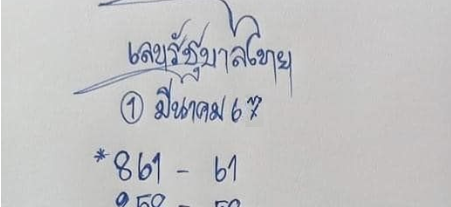 เลขรัฐบาลไทย
① มีนาคม 67
*861 - 61
858 - 58